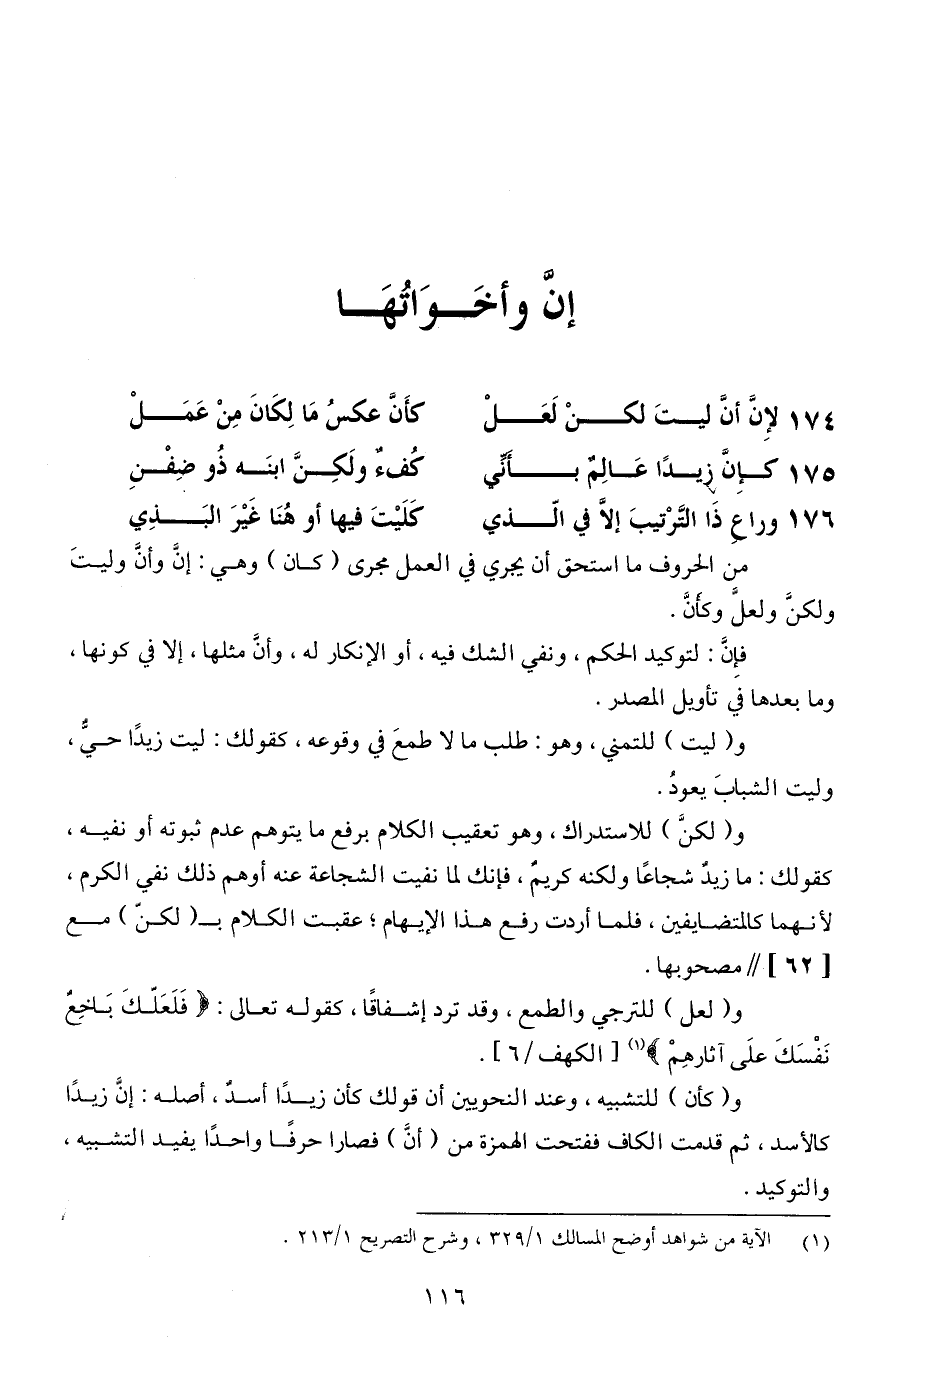 إنَّ وأخَـوَاتُهَـا
١٧٤ لإنَّ أنَّ ليـتَ لكـنْ لَعَـلْ كأنَّ عكسُ مَا لِكَانَ مِنْ عَمَـلْ
١٧٥ كـإنَّ زيـدًا عَـالِمٌ بـأنِّي كُفءٌ ولَكِـنَّ ابنَـه ذُو ضِغْـنِ
١٧٦ وراعِ ذَا التَّرْتيبَ إلاَّ في الَّـذي كَلَيْتَ فيها أو هُنَا غَيْرَ البَـذِي
من الحروف ما استحق أن يجري في العمل مجرى ( كـان ) وهـي : إنَّ وأنَّ وليـتَ
ولكنَّ ولعلَّ وكأنَّ .
فإنَّ : لتوكيد الحكم ، ونفي الشك فيه ، أو الإنكار له ، وأنَّ مثلها ، إلا في كونها ،
وما بعدها في تأويل المصدر .
و( ليت ) للتمني ، وهو : طلب ما لا طمعَ في وقوعه ، كقولك : ليت زيدًا حـيٌّ ،
وليت الشبابَ يعودُ .
و( لكنَّ ) للاستدراك ، وهو تعقيب الكلام برفع ما يتوهم عدم ثبوته أو نفيـه ،
كقولك : ما زيدٌ شجاعًا ولكنه كريمٌ ، فإنك لما نفيت الشجاعة عنه أوهم ذلك نفي الكرم ،
لأنـهما كالمتضـايفين ، فلمـا أردت رفـع هـذا الإيهـام ؛ عقبـت الكـلام بـ( لكـنّ ) مـع
[ ٦٢ ] // مصحوبها .
و( لعل ) للترجي والطمع ، وقد ترد إشـفاقًا ، كقولـه تعـالى : ﴿ فَلَعَلّـكَ بَـاخِعٌ
نَفْسَكَ علَى آثارِهِمْ ﴾(١) [ الكهف/٦ ] .
و( كأن ) للتشبيه ، وعند النحويين أن قولك كأن زيـدًا أسـدٌ ، أصلـه : إنَّ زيـدًا
كالأسد ، ثم قدمت الكاف ففتحت الهمزة من ( أنَّ ) فصارا حرفًـا واحـدًا يفيـد التشـبيه ،
والتوكيد .
(١) الآية من شواهد أوضح المسالك ٣٢٩/١ ، وشرح التصريح ٢١٣/١ .
١١٦